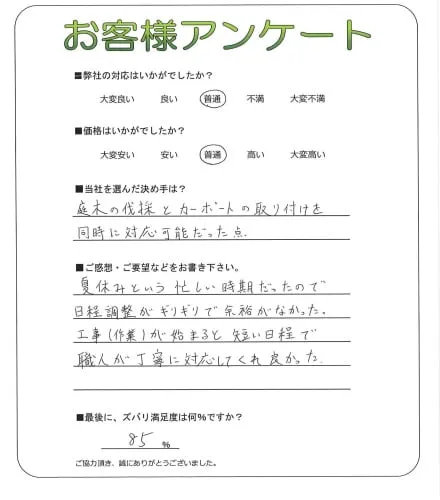 お客様アンケート
■弊社の対応はいかがでしたか？
大変良い 良い 普通 不満 大変不満
■価格はいかがでしたか？
大変安い 安い 普通 高い 大変高い
■当社を選んだ決め手は？
庭木の伐採とカーポートの取り付けを
同時に対応可能だった点.
■ご感想・ご要望などをお書き下さい。
夏休みという忙しい時期だったので
日程調整がギリギリで余裕がなかった。
工事(作業)が始まると短い日程で
職人が丁寧に対応してくれ良かった.
■最後に、ズバリ満足度は何%ですか？
85 %
ご協力頂き、誠にありがとうございました。